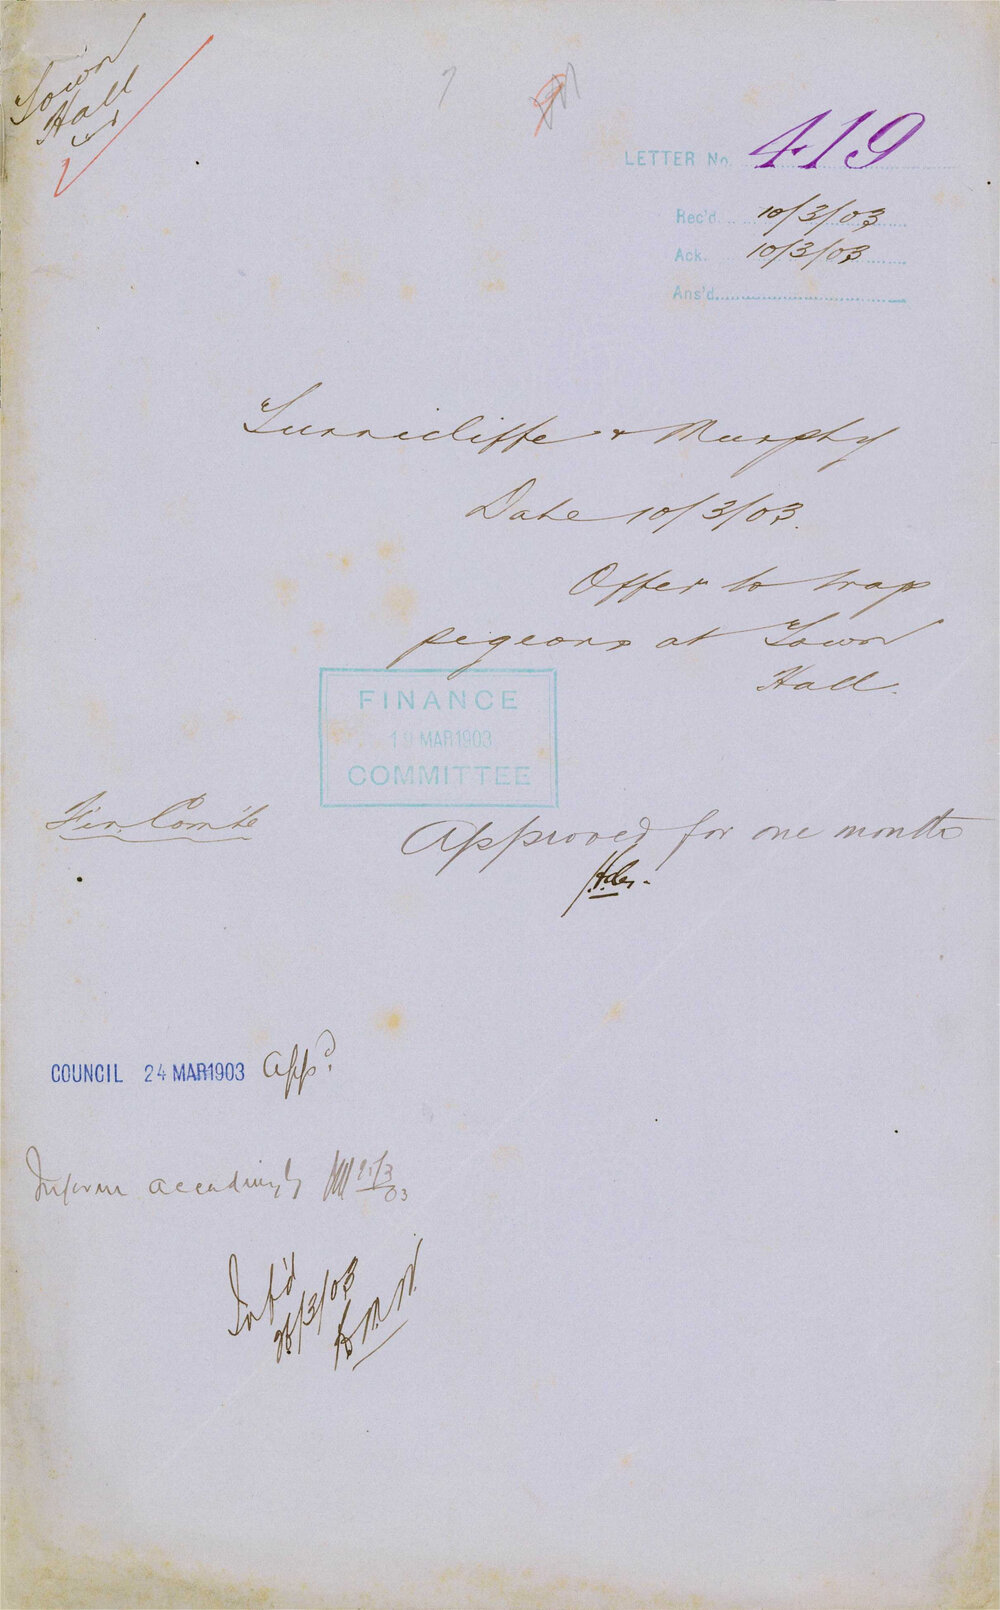 Town
Hall
LETTER No. 419
Rec'd. 10/3/03
Ack. 10/3/03
Ans'd.
Tunnicliffe & Murphy
Date 10/3/03.
Offer to trap
pigeons at Town
Hall.
FINANCE
19 MAR 1903
COMMITTEE
Fin. Comte
Approved for one month
COUNCIL 24 MAR 1903 Appd.
Inform accordingly 25/3/03
Inf'd
26/3/03